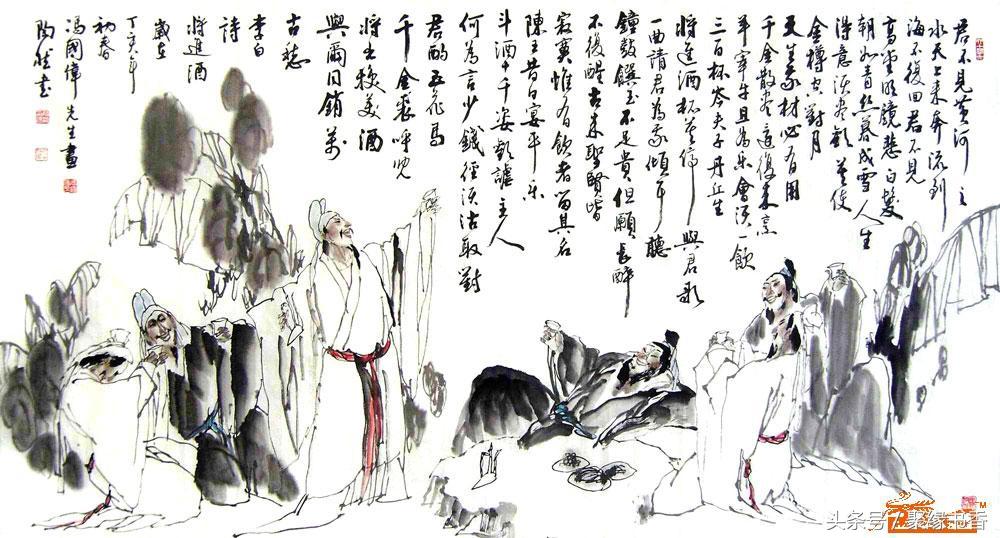 君不見黃河之
水天上來奔流到
海不復回君不見
高堂明鏡悲白髮
朝如青絲暮成雪人生
得意須盡歡莫使
金樽空對月
天生我材必有用
千金散盡還復來烹
羊宰牛且為樂會須一飲
三百杯岑夫子丹丘生
將進酒杯莫停與君歌
一曲請君為我傾耳聽
鐘鼓饌玉不足貴但願長醉
不復醒古來聖賢皆
寂寞惟有飲者留其名
陳王昔日宴平樂
斗酒十千恣歡謔主人
何為言少錢徑須沽取對
君酌五花馬
千金裘呼兒
將出換美酒
與爾同銷萬
古愁
李白
詩
將進酒
歲在
丁亥年
初春
馮國偉先生畫
書
头条号 / 聚缘书香
TM